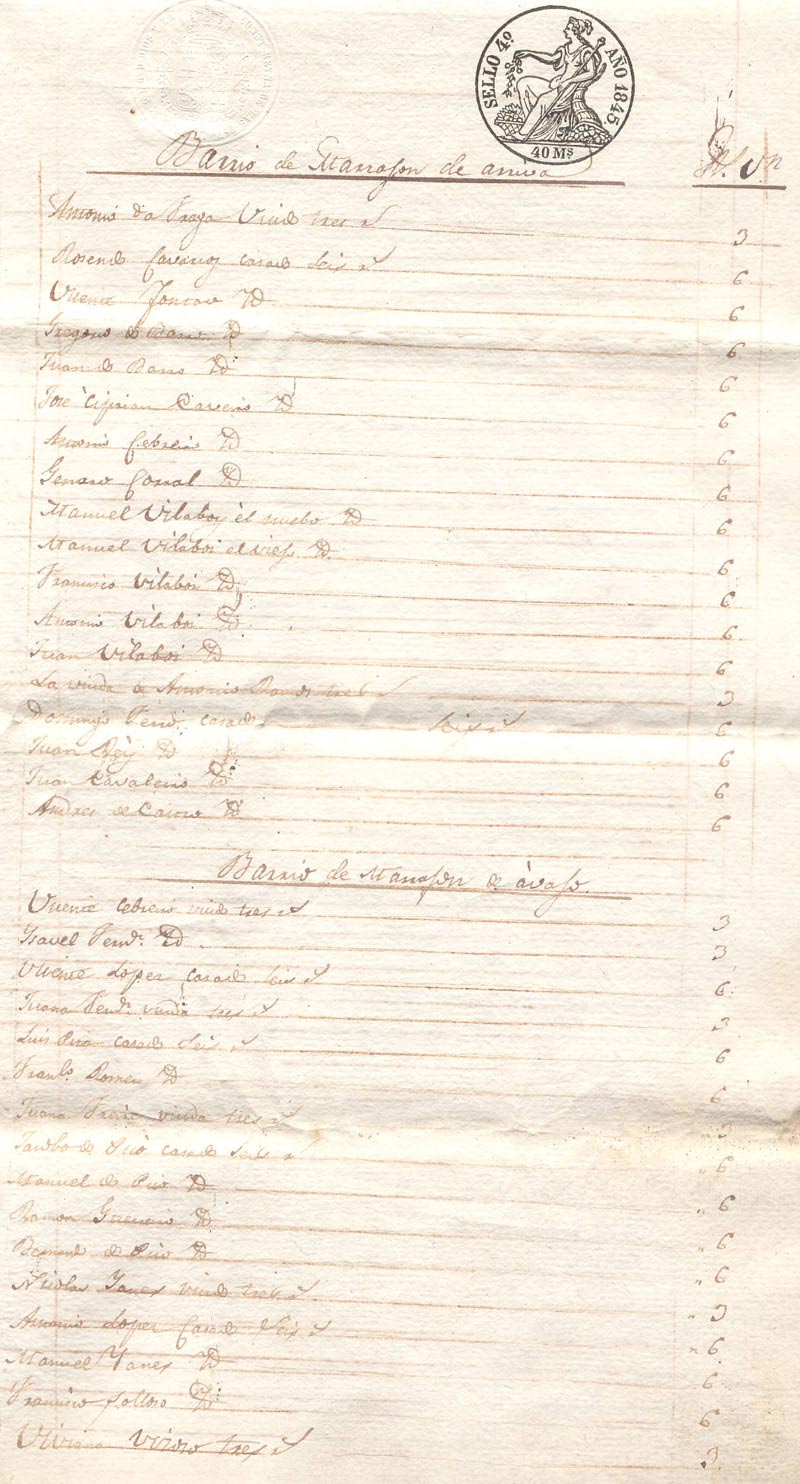 SELLO 4º AÑO 1845.
40 Ms
Barrio de Marrozon de arriva
Rs. Vn
Antonio da Fraga Viudo tres rs 3
Rosendo Cavarcos casado seis rs 6
Vicente Yd 6
Gregorio de Barro Yd 6
Juan de Barro Yd 6
José Ciprian Yd 6
Antonio Cebreiro Yd 6
Genaro Corral Yd 6
Manuel Vilaboy èl nuebo Yd 6
Manuel Vilaboi el viejo Yd 6
Francisco Vilaboi Yd 6
Antonio Vilaboi Yd 6
Juan Vilaboi Yd 6
La viuda de Antonio Ramos tres rs 3
Domingo Ferndz casado seis rs 6
Juan Rey Yd 6
Juan Cavaleiro Yd 6
Andres de Castro Yd 6
Barrio de Marrozon de àvajo.
Vicente Cebreiro viudo tres rs 3
Ysavel Ferndz Yd 3
Vicente Lopez casado seis rs 6
Juana Ferndz viuda tres rs 3
Luis casado seis rs 6
Franco Romeu Yd 6
Juana Freire viuda tres rs 3
Jacobo de casado seis rs 6
Manuel de Yd 6
Ramon Guerreiro Yd 6
Bernardo de Yd 6
Nicolas Yanes viudo tres rs 3
Antonio Lopez Casado Seis rs 6
Manuel Yanes Yd 6
Francisco Yd 6
Viviana tres rs 3